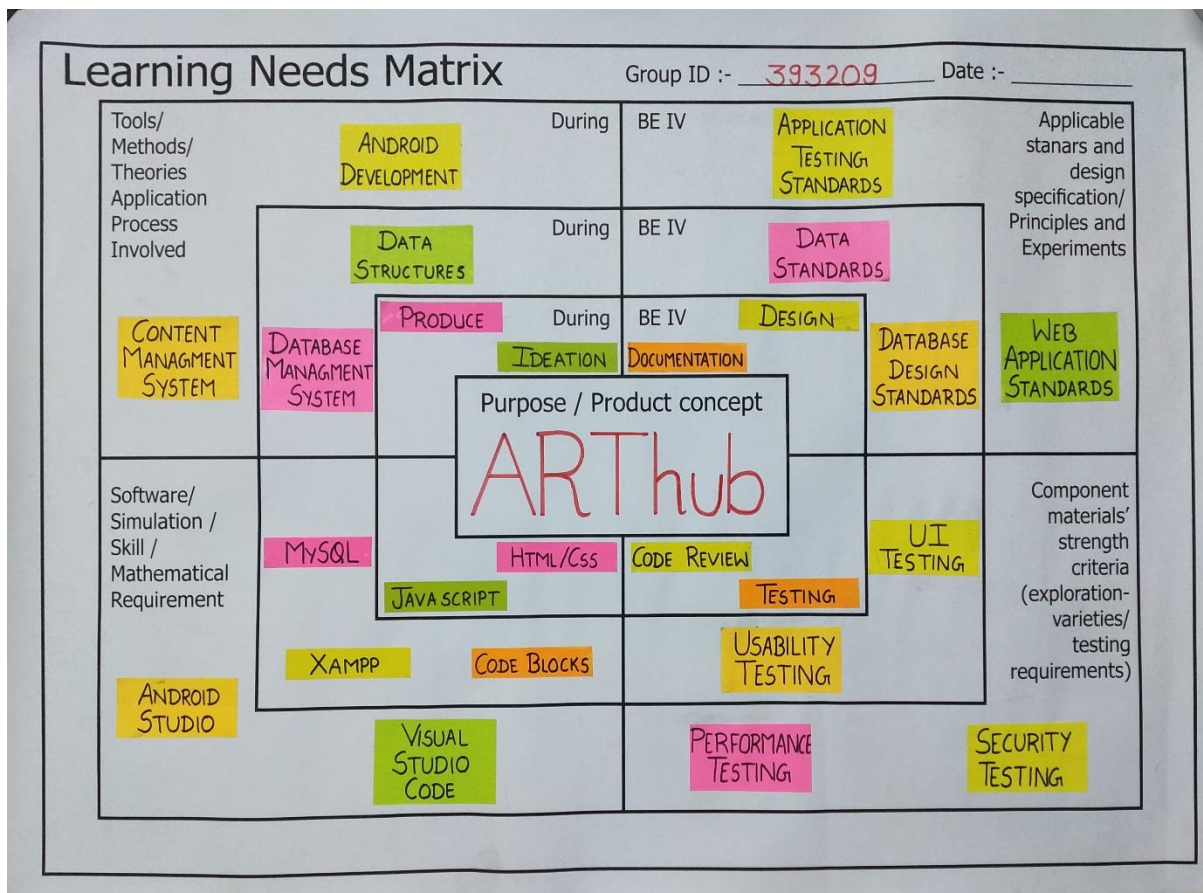 Learning Needs Matrix
Group ID :- 393209 Date :-
Tools/
Methods/
Theories
Application
Process
Involved
ANDROID
DEVELOPMENT
During
BE IV
APPLICATION
TESTING
STANDARDS
Applicable
stanars and
design
specification/
Principles and
Experiments
DATA
STRUCTURES
During
BE IV
DATA
STANDARDS
CONTENT
MANAGMENT
SYSTEM
DATABASE
MANAGMENT
SYSTEM
PRODUCE
During
IDEATION
BE IV
DOCUMENTATION
DESIGN
DATABASE
DESIGN
STANDARDS
WEB
APPLICATION
STANDARDS
Purpose / Product concept
ARThub
Software/
Simulation /
Skill /
Mathematical
Requirement
MYSQL
HTML/CSS
JAVASCRIPT
CODE REVIEW
TESTING
UI
TESTING
Component
materials'
strength
criteria
(exploration-
varieties/
testing
requirements)
XAMPP
CODE BLOCKS
USABILITY
TESTING
ANDROID
STUDIO
VISUAL
STUDIO
CODE
PERFORMANCE
TESTING
SECURITY
TESTING